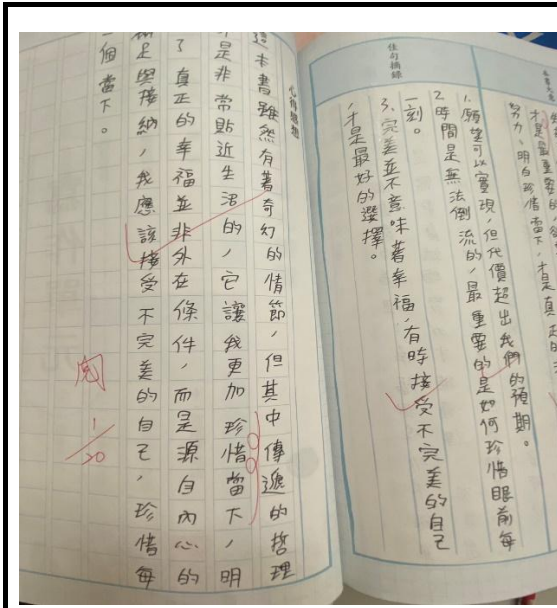 本書大意
才是最重要的
努力、明白珍惜當下,才是真正的
佳句摘錄
1.願望可以實現,但代價超出我們的預期。
2.時間是無法倒流的,最重要的是如何珍惜眼前每
一刻。
3.完美並不意味著幸福,有時接受不完美的自己
,才是最好的選擇。
心得感想
這本書雖然有著奇幻的情節,但其中傳遞的哲理
是非常貼近生活的,它讓我更加珍惜當下,明
了真正的幸福並非外在條件,而是源自內心的
滿足與接納,我應該接受不完美的自己,珍惜每
一個當下。
閱
1/20